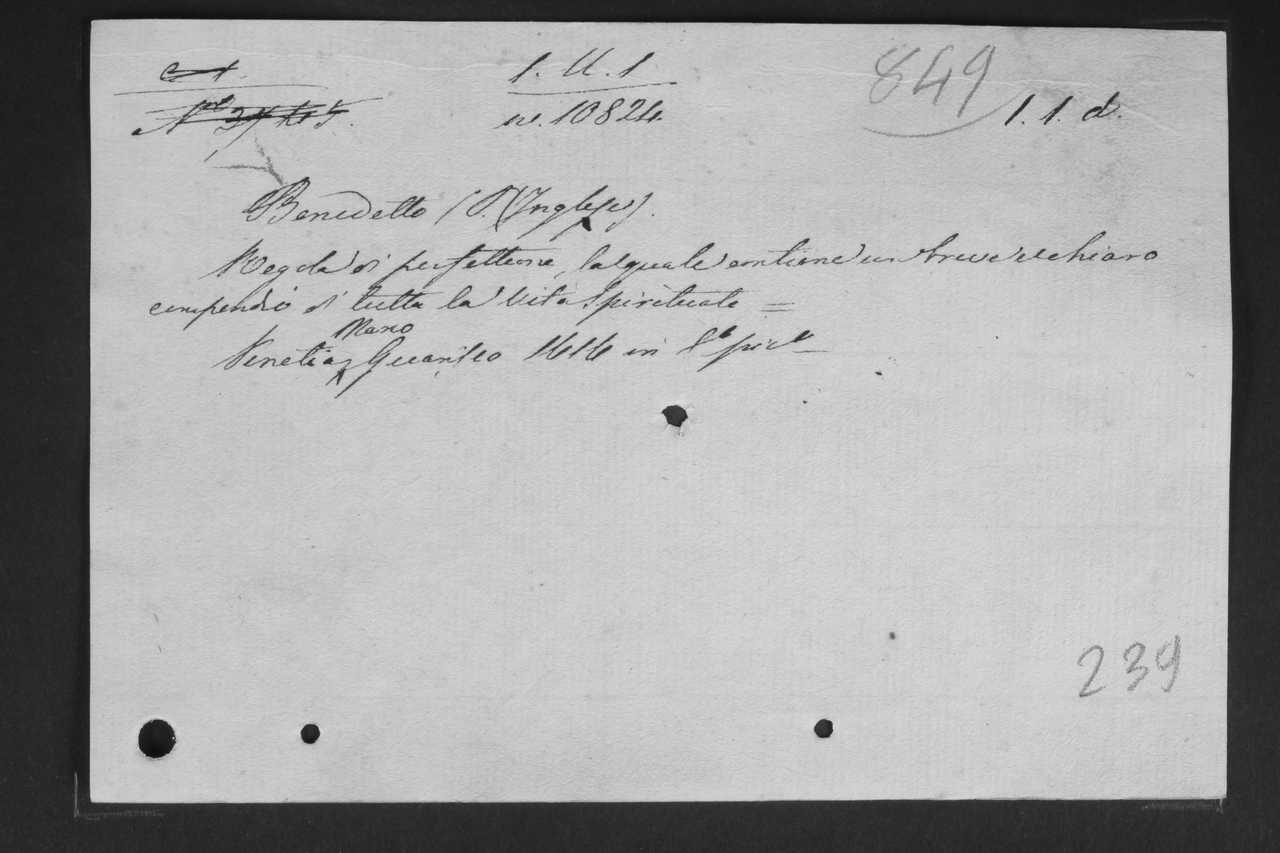 1. U. 1
849
n. 10824
1. 1. d.
Benedetto (P. Inglese).
Regola di perfettione, la quale contiene un breve e chiaro
compendio di tutta la vita spirituale =
Marco
Venetia, Guarisco 1616 in 8° picc°
239